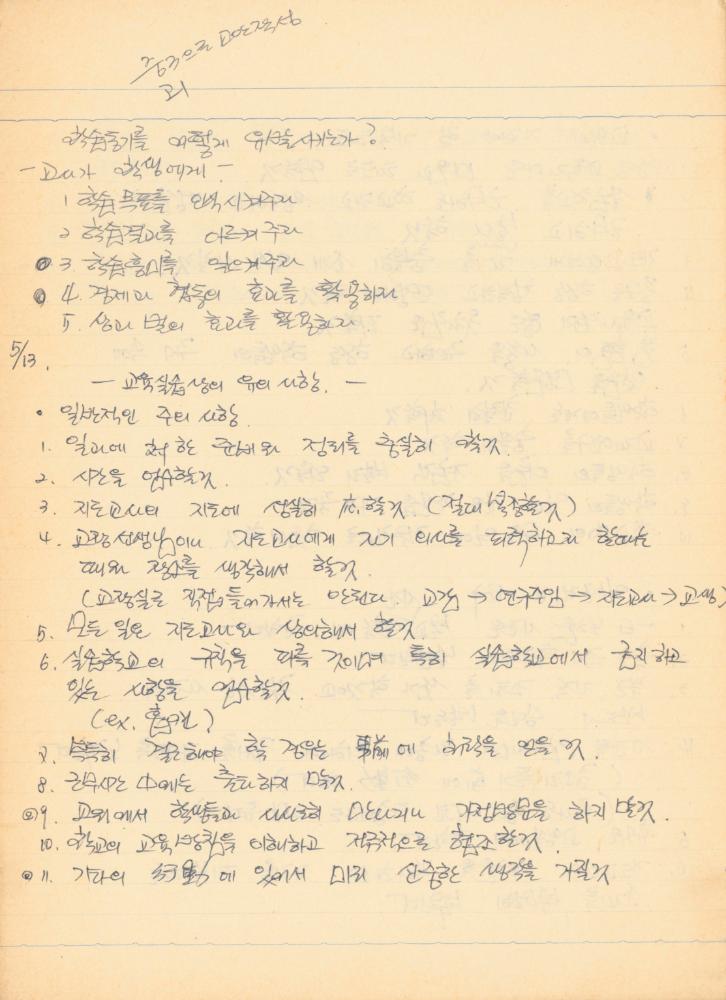 학습동기를 어떻게 유발시키는가?
- 교사가 학생에게 -
1 학습목표를 인식시켜주라
2 학습결과를 아르켜주라
3. 학습흥미를 일으켜주라
4. 경제과 협동의 효과를 활용하라
5. 상과 벌의 효과를 활용하라
5/13.
- 교육실습상의 유의사항. -
• 일반적인 주의 사항
1. 일과에 처한 준비와 정리를 충실히 할것.
2. 시간을 엄수할것.
3. 지도교사의 지도에 성실히 応할것 (절대복종할것)
4. 교장선생님이나 지도교사에게 자기 의사를 피력하고자 할때는
때와 장소를 생각해서 할것.
(교장실로 직접 들어가서는 안된다 교감 → 연구주임 → 지도교사 → 교생)
5. 모든 일은 지도교사와 상의해서 할것.
6. 실습학교의 규칙을 따를 것이며 특히 실습학교에서 금지하고
있는 사항을 엄수할것.
(ex. 흡연)
7. 부득히 결근해야 할 경우는 事前에 허락을 얻을 것.
8. 근무시간 中에는 출타하지 말것.
9. 교외에서 학생들과 사사로히 만나거나 가정방문을 하지 말것.
10. 학교의 교육방침을 이해하고 적극적으로 협조할것.
11. 기타의 行動에 있어서 미리 신중한 생각을 가질것